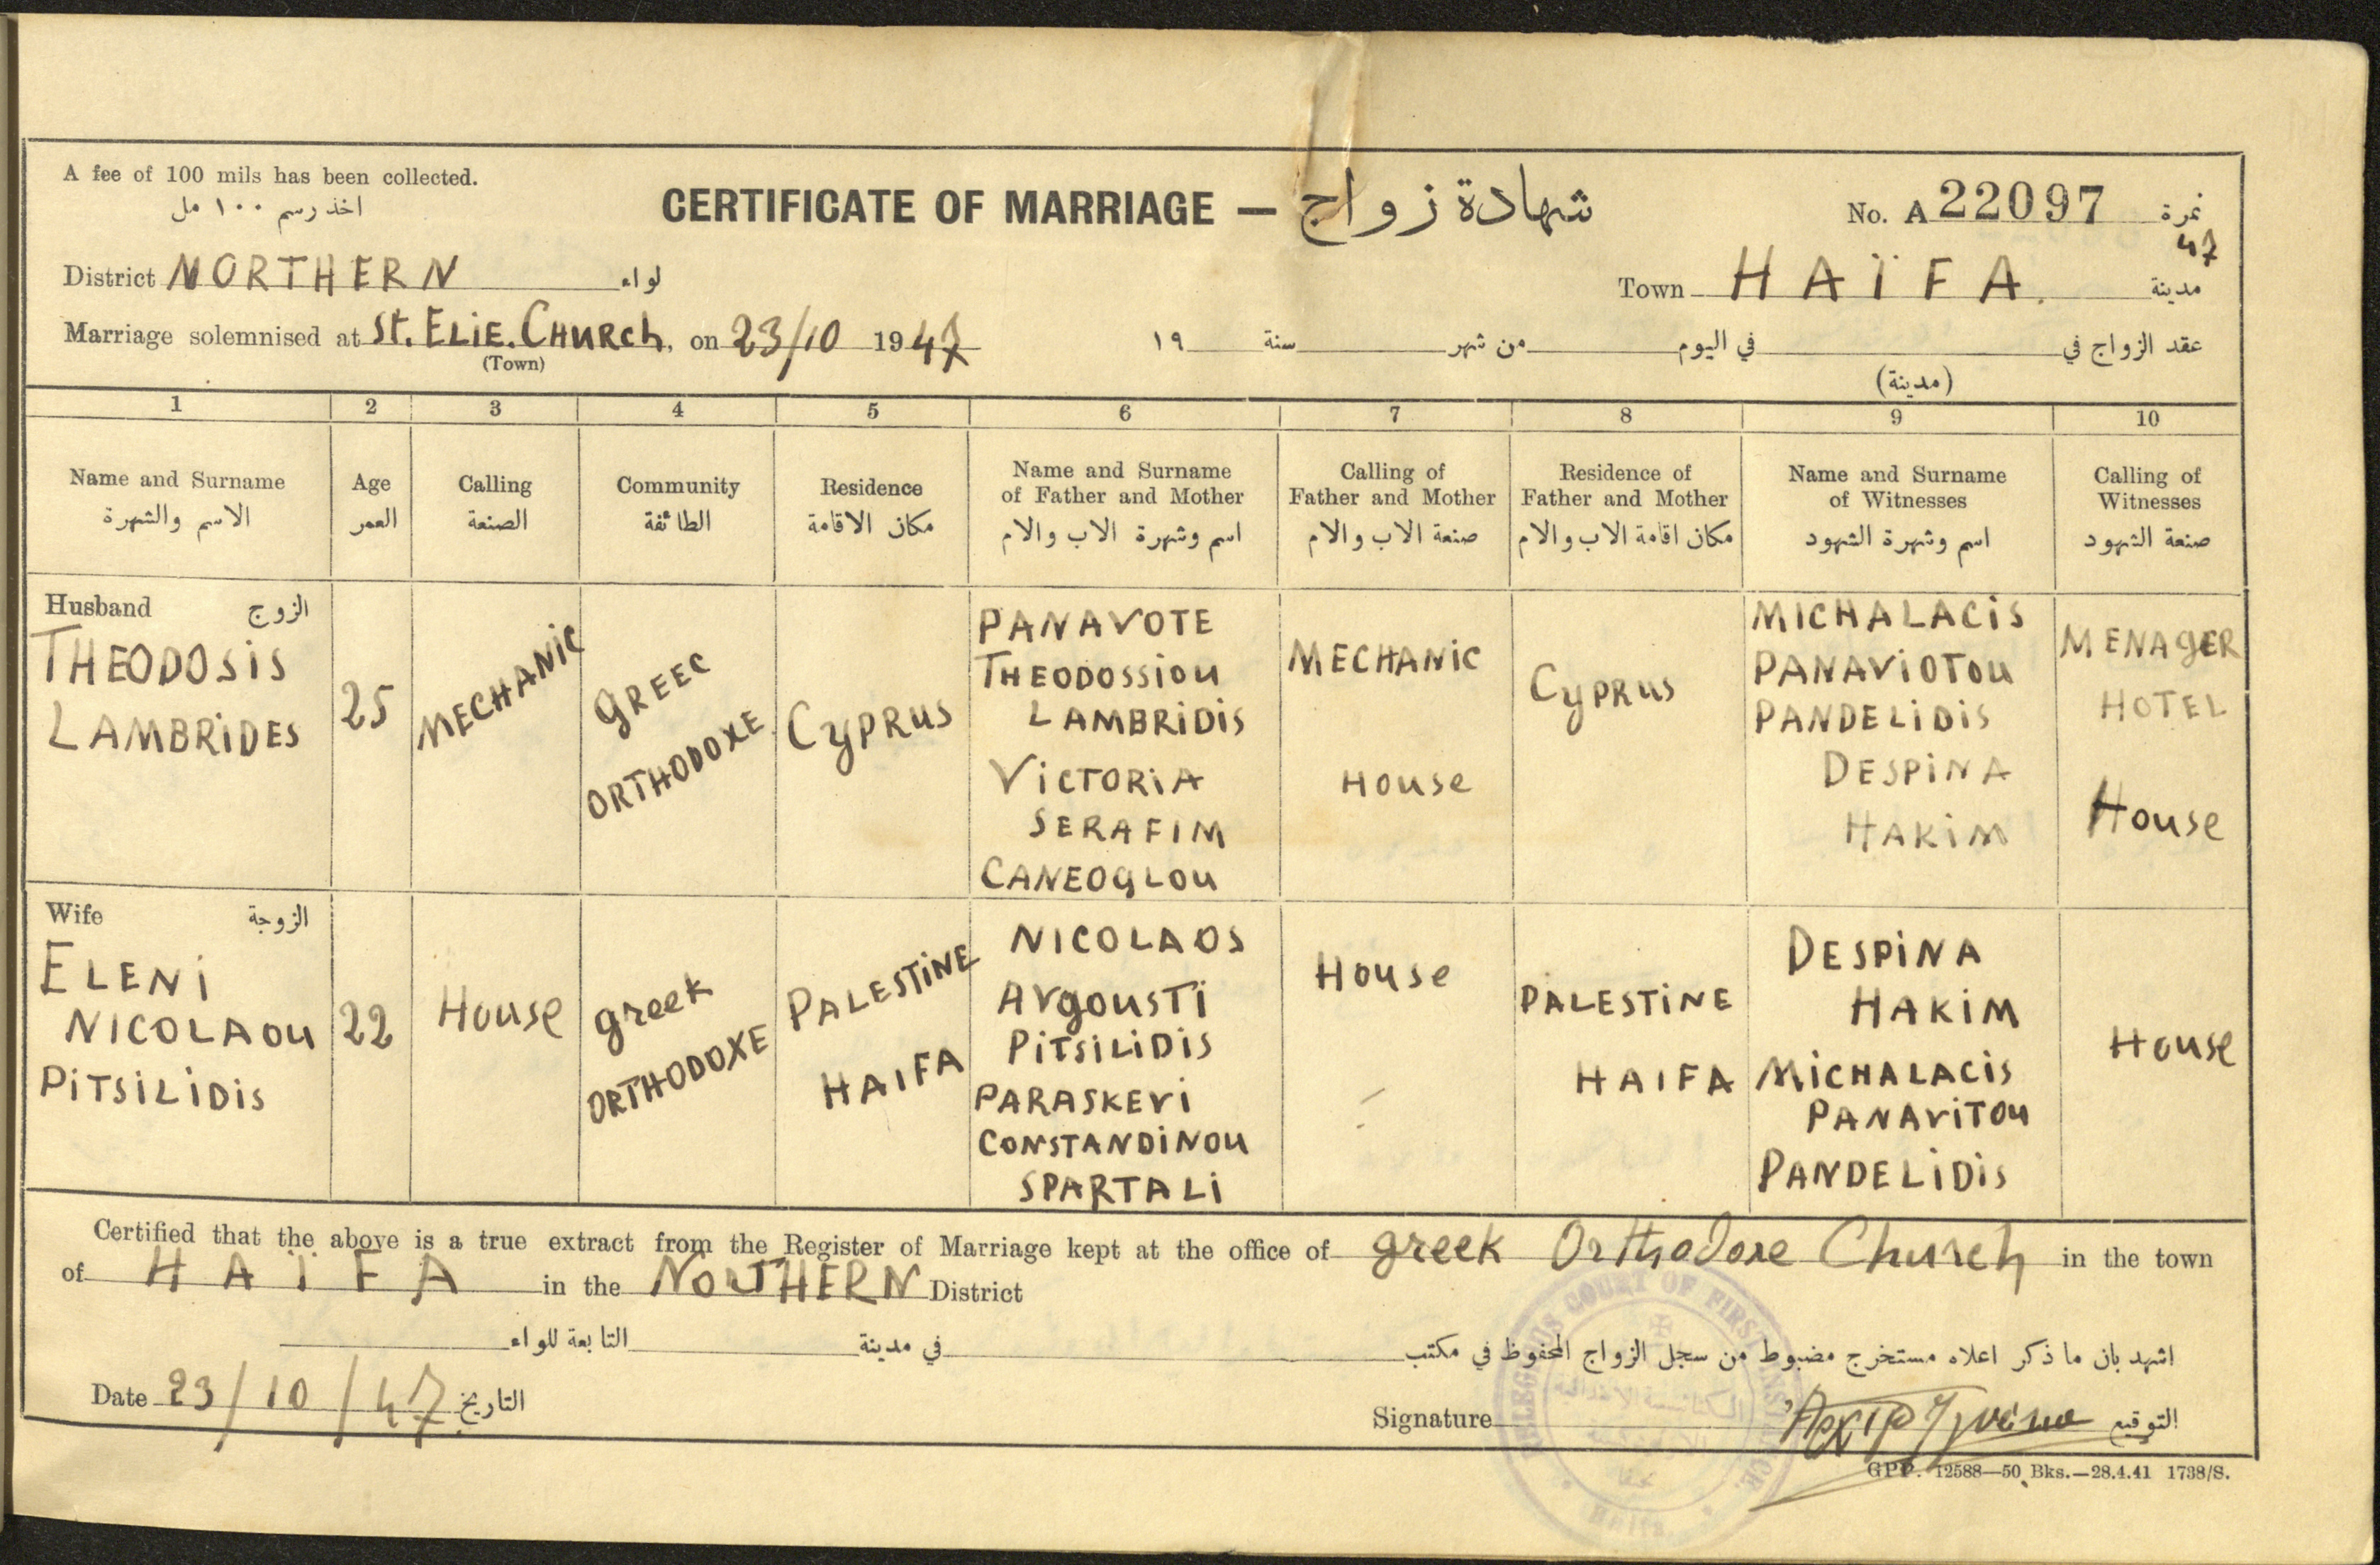 A fee of 100 mils has been collected.
اخذ رسم ١٠٠ مل
CERTIFICATE OF MARRIAGE — شهادة زواج
No. A 22097 نمرة
47
District NORTHERN لواء
Town HAÏFA. مدينة
Marriage solemnised at St. ELIE. CHURCH, on 23/10 1947
(Town)
عقد الزواج في في اليوم من شهر سنة ١٩
(مدينة)
1 2 3 4 5 6 7 8 9 10
Name and Surname
الاسم والشهرة
Age
العمر
Calling
الصنعة
Community
الطائفة
Residence
مكان الاقامة
Name and Surname
of Father and Mother
اسم وشهرة الاب والام
Calling of
Father and Mother
صنعة الاب والام
Residence of
Father and Mother
مكان اقامة الاب والام
Name and Surname
of Witnesses
اسم وشهرة الشهود
Calling of
Witnesses
صنعة الشهود
Husband الزوج
THEODOSIS
LAMBRIDES
25
MECHANIC
GREEC
ORTHODOXE
CYPRUS
PANAVOTE
THEODOSSIOU
LAMBRIDIS
VICTORIA
SERAFIM
CANEOGLOU
MECHANIC
HOUSE
CYPRUS
MICHALACIS
PANAVIOTOU
PANDELIDIS
DESPINA
HAKIM
MENAGER
HOTEL
HOUSE
Wife الزوجة
ELENI
NICOLAOU
PITSILIDIS
22
HOUSE
greek
ORTHODOXE
PALESTINE
HAIFA
NICOLAOS
AVGOUSTI
PITSILIDIS
PARASKEVI
CONSTANDINOU
SPARTALI
HOUSE
PALESTINE
HAIFA
DESPINA
HAKIM
MICHALACIS
PANAVITOU
PANDELIDIS
HOUSE
Certified that the above is a true extract from the Register of Marriage kept at the office of greek Orthodoxe Church in the town
of HAÏFA in the NORTHERN District
اشهد بان ما ذكر اعلاه مستخرج مضبوط من سجل الزواج المحفوظ في مكتب في مدينة التابعة للواء
Date 23/10/47 التاريخ
Signature التوقيع
RELEGIUS COURT OF FIRST INSTANCE.
Haifa.
GPP. 12588—50 Bks.—28.4.41 1738/S.